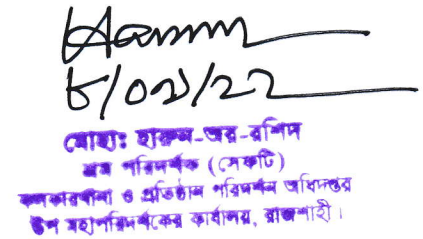 ৮/০৯/২২
মোহাঃ হারুন-অর-রশিদ
শ্রম পরিদর্শক (সেফটি)
কলকারখানা ও প্রতিষ্ঠান পরিদর্শন অধিদপ্তর
উপ মহাপরিদর্শকের কার্যালয়, রাজশাহী।